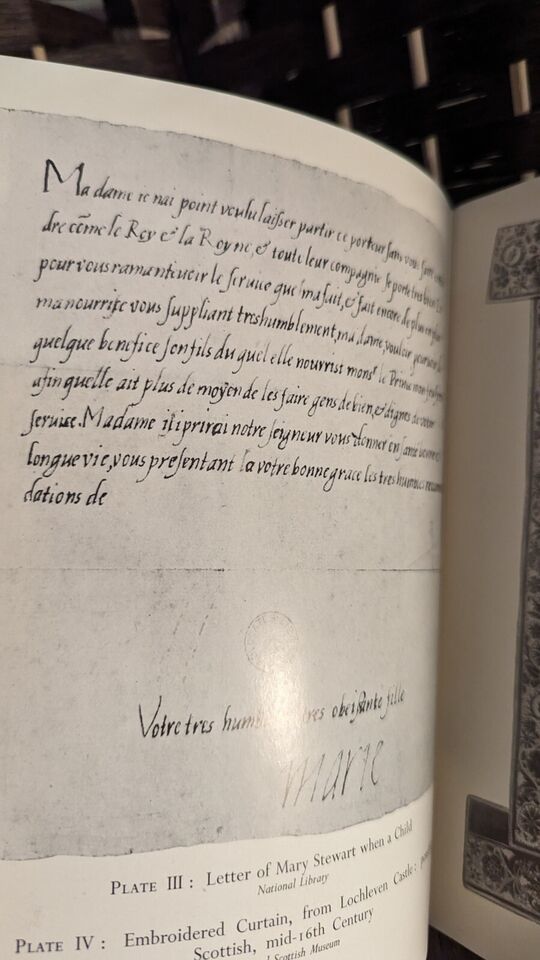 Madame ie nai point voulu laisser partir ce porteur sans vous
dre cōme le Roy & la Royne, & toute leur compagnie se porte tres bien
pour vous ramantiveir le seruice que ma fait, & fait encore de plus en plus
ma nourrise vous suppliant treshumblement, ma dame, vouloir
quelque benefice son fils du quel elle nourrist monsr le
afin quelle ait plus de moyen de les faire gens de bien, & dignes de
seruice. Madame prirai notre seigneur vous donner en santé bonne
longue vie, vous presentant a votre bonne grace les tres humbles
dations de
Votre tres tres obeisante fille
Marie
PLATE III: Letter of Mary Stewart when a Child
National Library
PLATE IV: Embroidered Curtain, from Lochleven Castle:
Scottish, mid-16th Century
Scottish Museum